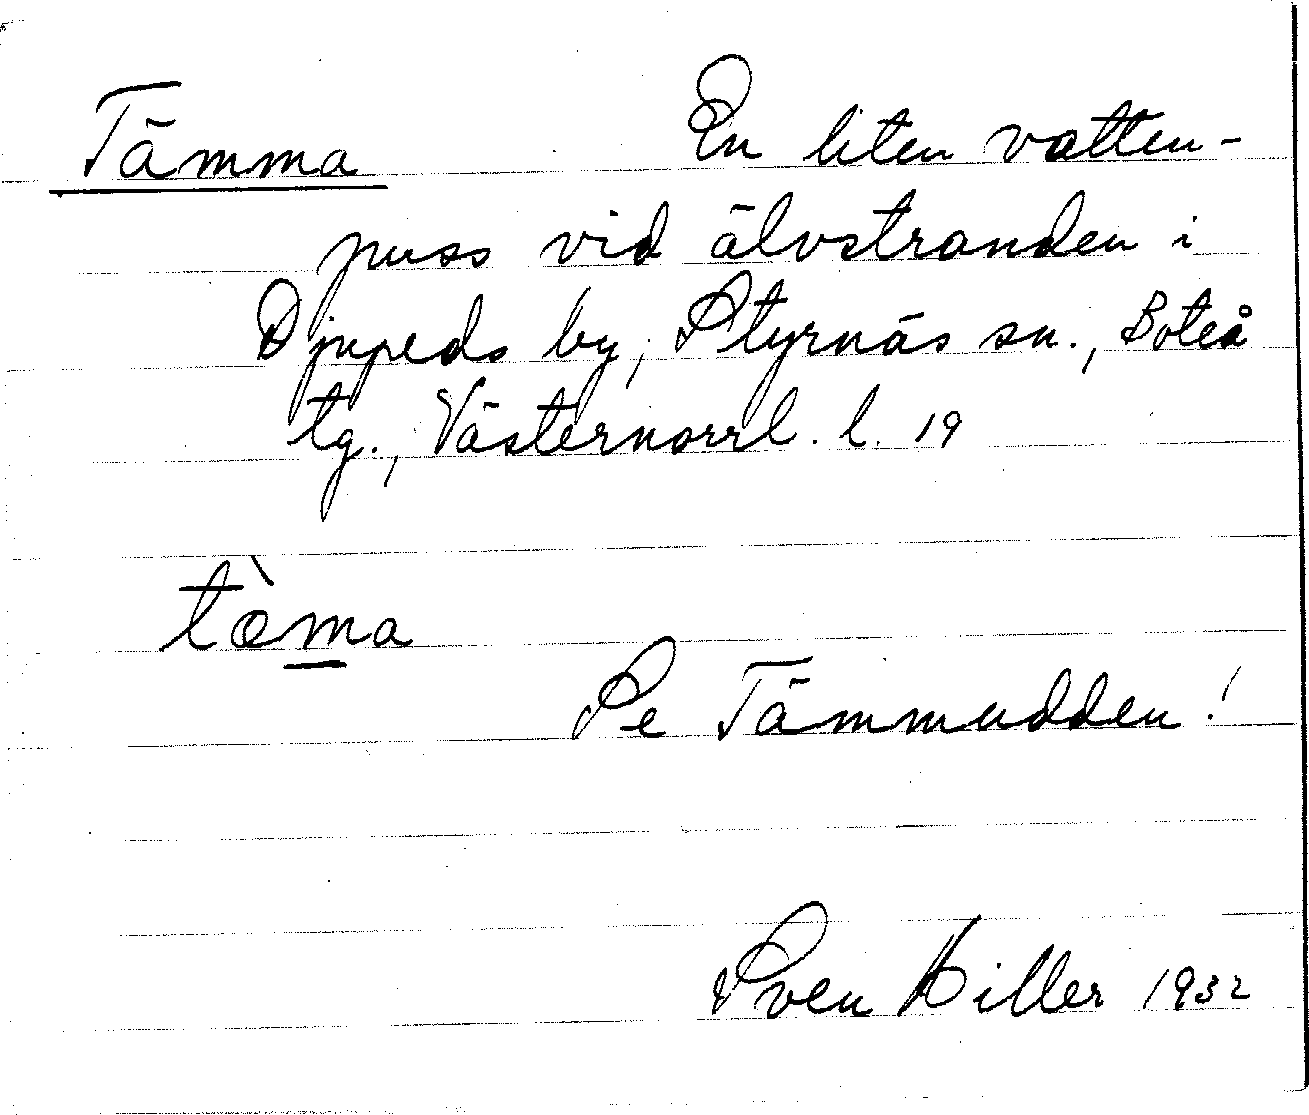 Tämma En liten vatten-
puss vid älvstranden i
Djupeds by, Styrnäs sn., Boteå
tg., Västernorrl. l. 19
tæ̀ma
Se Tämmudden!
Sven Hiller 1932